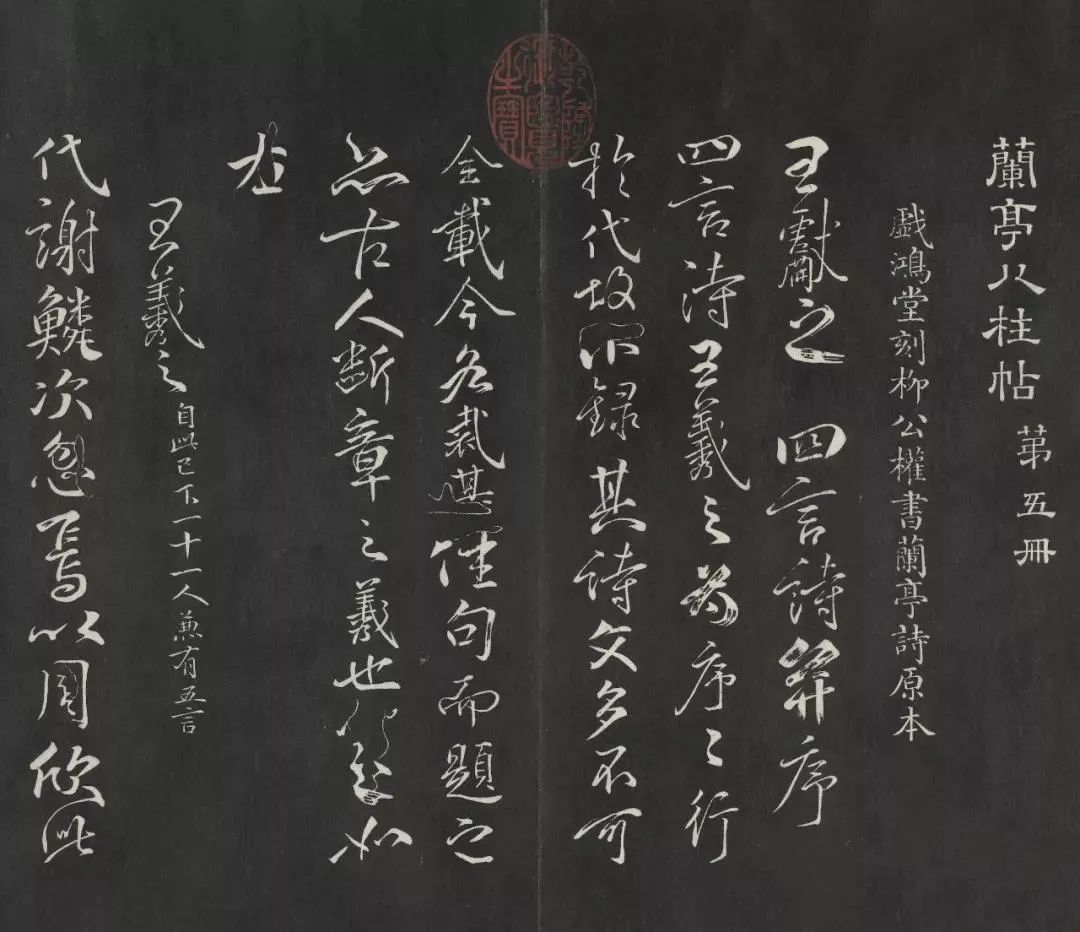 蘭亭八柱帖 第五冊
戲鴻堂刻柳公權書蘭亭詩原本
王獻之 四言詩并序
四言詩王羲之爲序〻行
於代故不録其詩文多不可
全載今各裁其佳句而題之
亦古人斷章之義也如
左
王羲之 自此已下一十一人兼有五言
代謝鱗次忽焉以周欣此